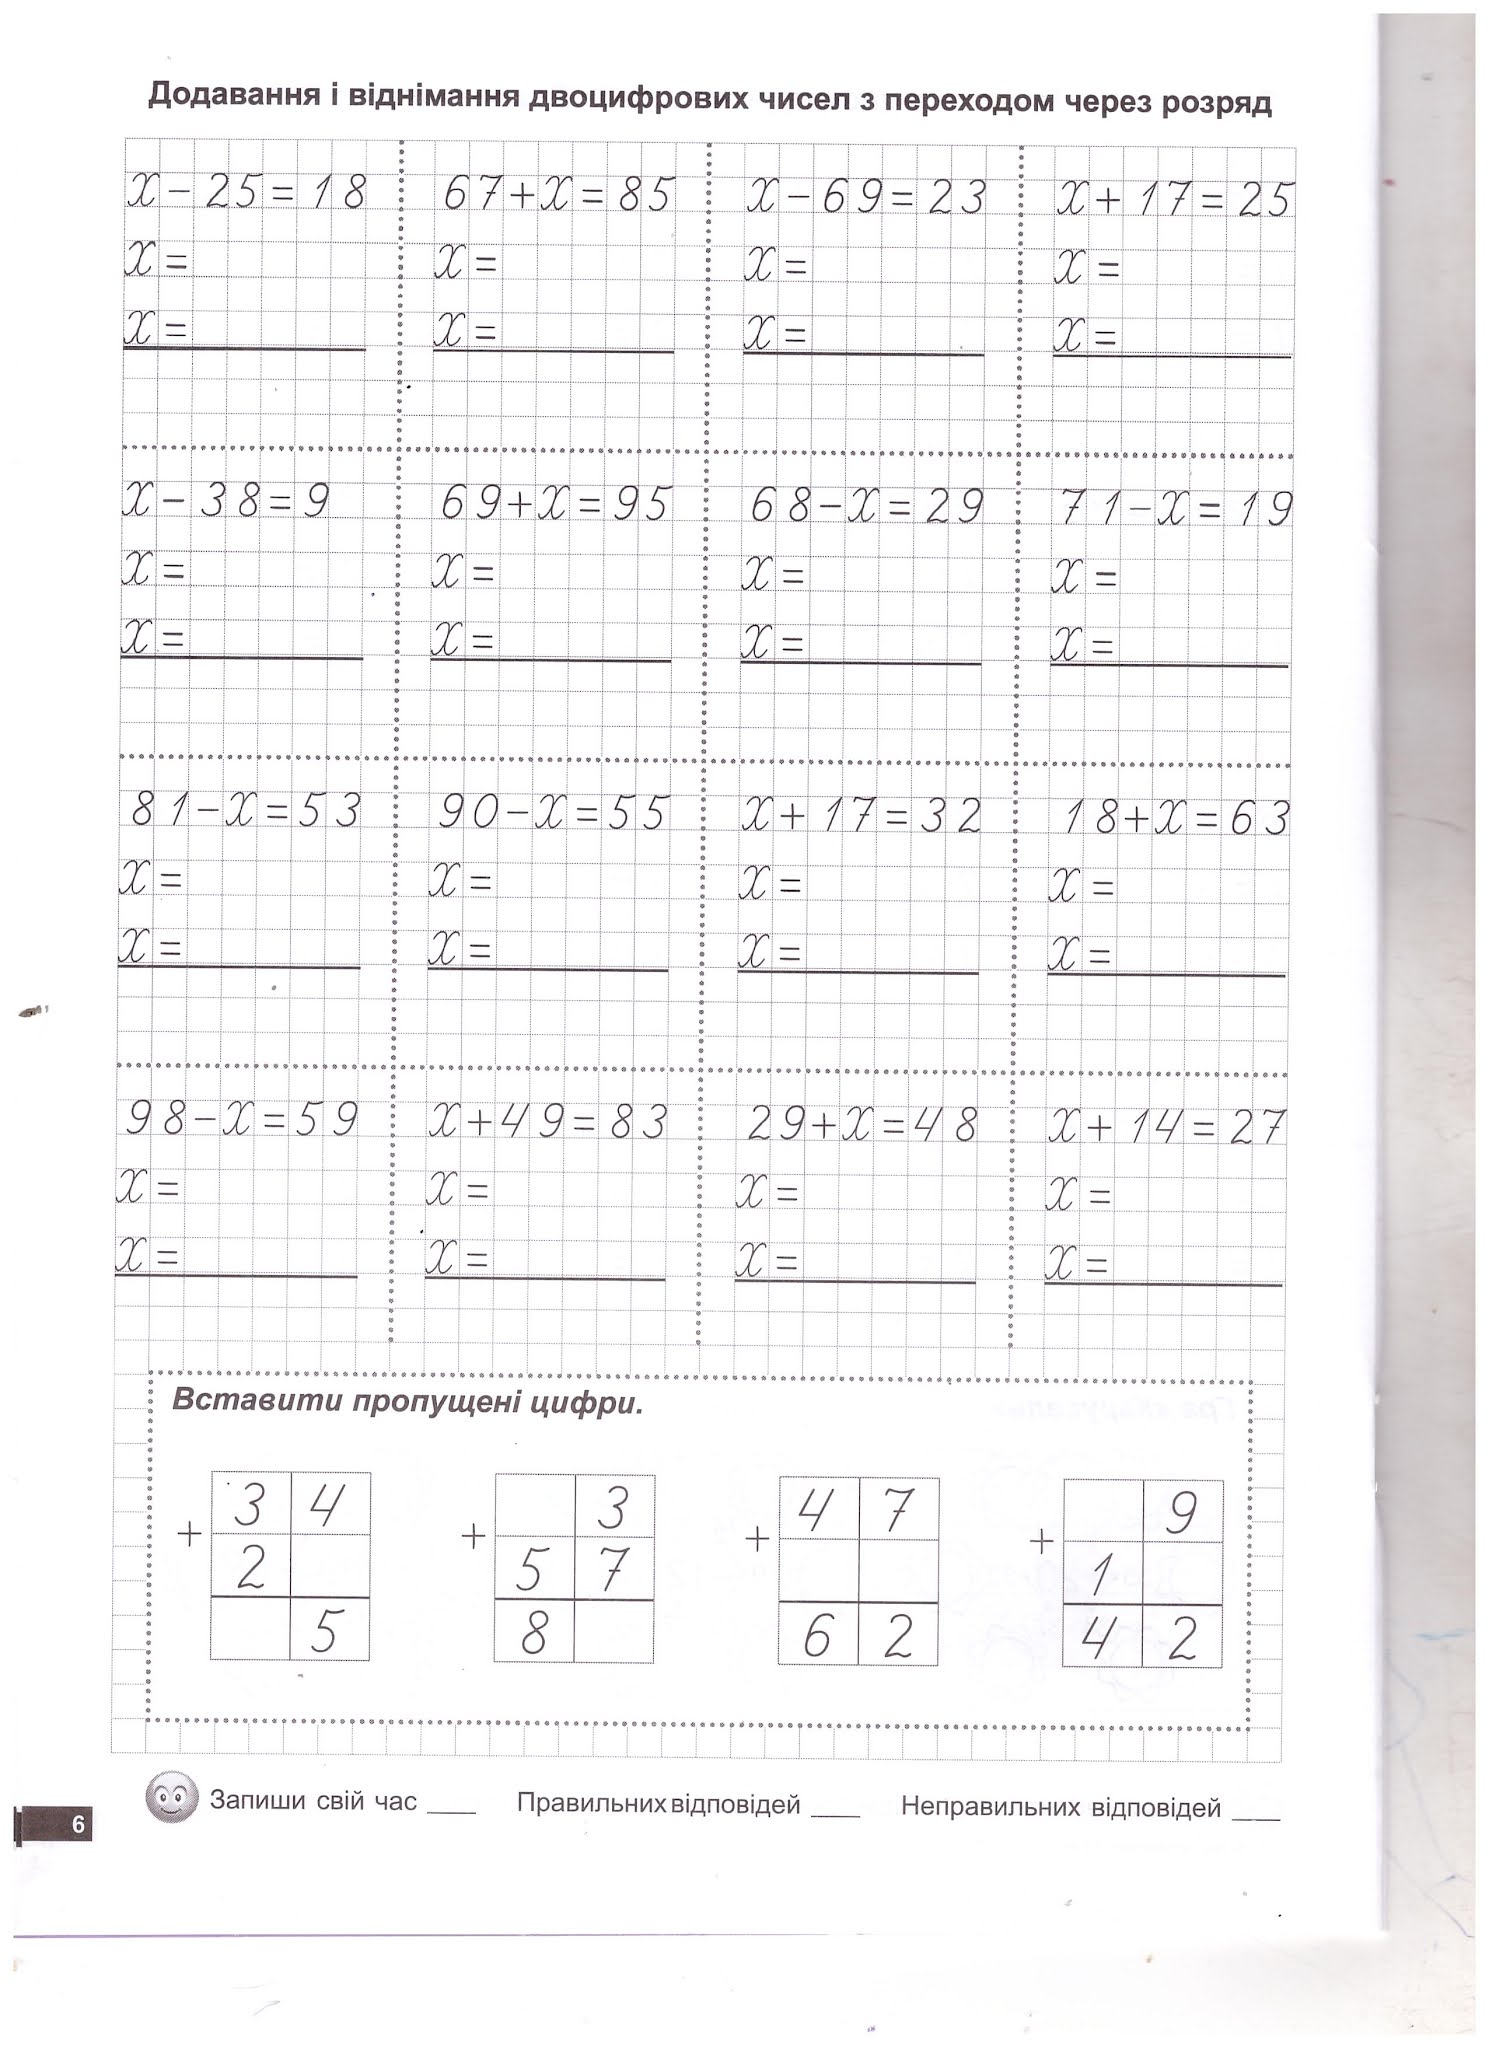 Додавання і віднімання двоцифрових чисел з переходом через розряд
x − 25 = 18 67 + x = 85 x − 69 = 23 x + 17 = 25
x = x = x = x =
x = x = x = x =
x − 38 = 9 69 + x = 95 68 − x = 29 71 − x = 19
x = x = x = x =
x = x = x = x =
81 − x = 53 90 − x = 55 x + 17 = 32 18 + x = 63
x = x = x = x =
x = x = x = x =
98 − x = 59 x + 49 = 83 29 + x = 48 x + 14 = 27
x = x = x = x =
x = x = x = x =
Вставити пропущені цифри.
3 4 3 4 7 9
+ + + +
2 5 7 1
5 8 6 2 4 2
Запиши свій час ___ Правильних відповідей ___ Неправильних відповідей ___
6